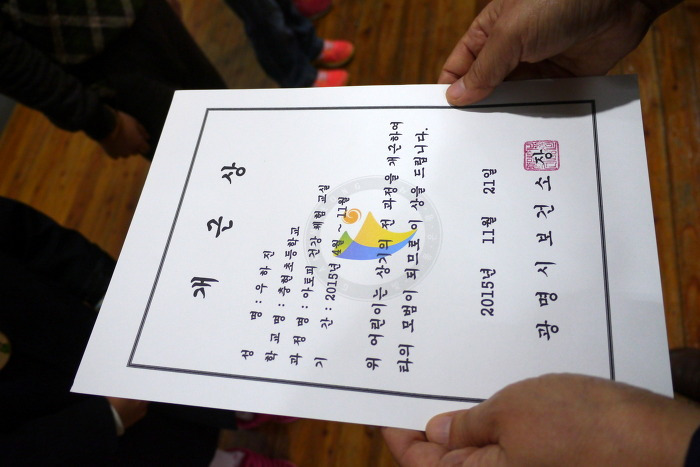 개 근 상
성 명 : 우 하 진
학 교 명 : 충현초등학교
과 정 명 : 아토피 건강 체험 교실
기 간 : 2015년 4월 ~ 11월
위 어린이는 상기의 전 과정을 개근하여
타의 모범이 되므로 이 상을 드립니다.
2015년 11월 21일
광 명 시 보 건 소 장